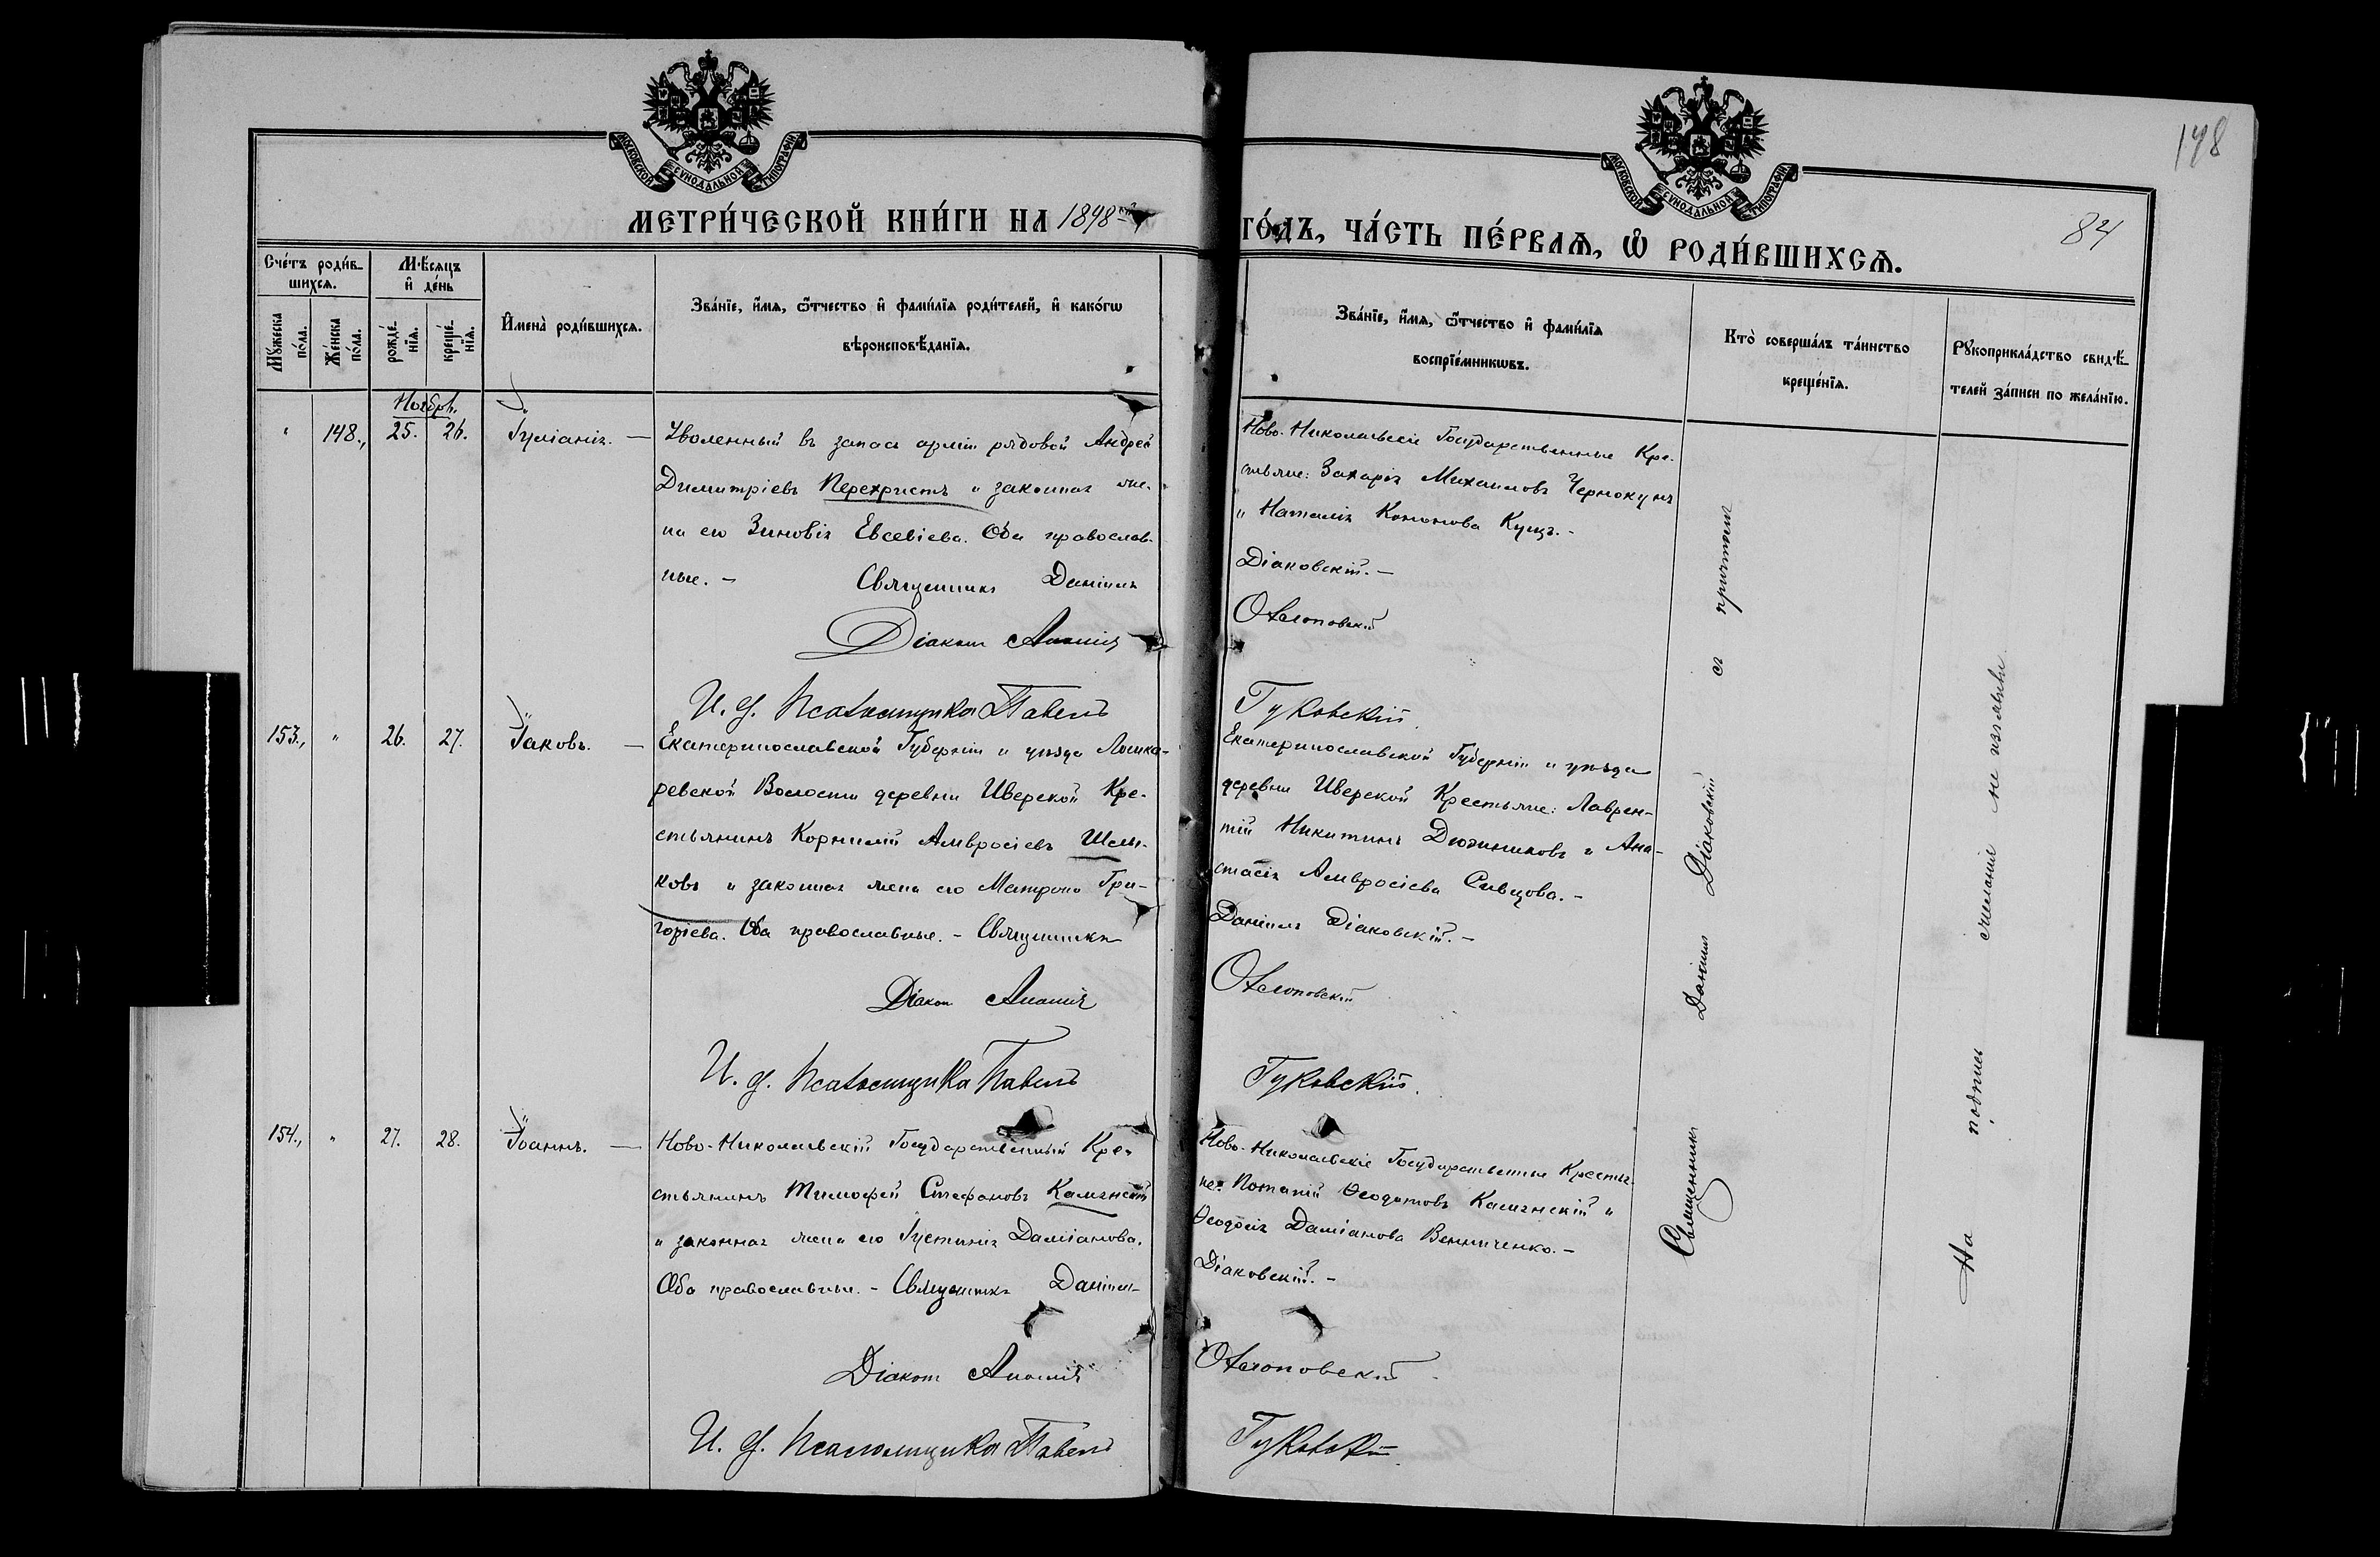 148
84
МОСКОВСКОЙ СѴНОДАЛЬНОЙ ТИПОГРАФІИ
МОСКОВСКОЙ СѴНОДАЛЬНОЙ ТИПОГРАФІИ
МЕТРИ́ЧЕСКОЙ КНИ́ГИ НА 1898
ГО́ДЪ, ЧА́СТЬ ПЕ́РВАѦ, Ѡ҆ РОДИ́ВШИХСѦ.
Сче́тъ роди́в-
шихсѧ.
Мꙋ́жеска
по́ла.
Же́нска
по́ла.
М҆ѣсѧцъ
и҆ де́нь
рожде́-
нїѧ.
креще́-
нїѧ.
И҆мена̀ роди́вшихсѧ.
Зва́нїе, и҆́мѧ, ѻ҆́тчество и҆ фами́лїѧ роди́телей, и҆ како́гѡ
вѣроисповѣ́данїѧ.
Зва́нїе, и҆́мѧ, ѻ҆́тчество и҆ фами́лїѧ
воспрїе́мникѡвъ.
Кто̀ соверша́лъ та́инство
креще́нїѧ.
Рꙋкоприкла́дство свидѣ́-
телей за́писи по жела́нїю.
Ноябрь.
" 148., 25. 26. Іуліанія. —
Уволенный въ запасъ арміи рядовой Андрей
Димитріевъ Перехристъ и законная же-
на его Зиновія Евсевіева. Оба православ-
ные. — Священникъ Даніилъ
Діаконъ Ананія
И. д. Псаломщика Павелъ
Ново-Николаевскіе Государственные Кре-
стьяне: Захарія Михаиловъ Чернокунъ
и Наталія Кононова Куцъ. -
Діаковскій. —
Гуковскій.
153., " 26. 27. Іаковъ. —
Екатеринославской Губерніи и уѣзда Лошка-
ревской Волости деревни Иверской Кре-
стьянинъ Корнилій Амвросіевъ Шелы-
ковъ и законная жена его Матрона Гри-
горіева. Оба православные. - Священникъ
Діаконъ Ананія
И. д. Псаломщика Павелъ
Екатеринославской Губерніи и уѣзда
деревни Иверской Крестьяне: Лаврен-
тій Никитинъ Дюжниковъ и Ана-
стасія Амвросіева Сивцова. -
Даніилъ Діаковскій. —
Гуковскій.
154., " 27. 28. Іоаннъ. —
Ново-Николаевскій Государственный Кре-
стьянинъ Тимофей Стефановъ Камянскій
и законная жена его Іустинія Даміанова.
Оба православные. - Священникъ Даніилъ
Діаконъ Ананія
И. д. Псаломщика Павелъ
Ново-Николаевскіе Государственные Крестья-
не: Потапій Ѳеодотовъ Камянскій и
Ѳеодосія Даміанова Винниченко. -
Діаковскій. -
Гуковскій.
Священникъ Даніилъ Діаковскій съ причтомъ
На подпись желанія не изъявили